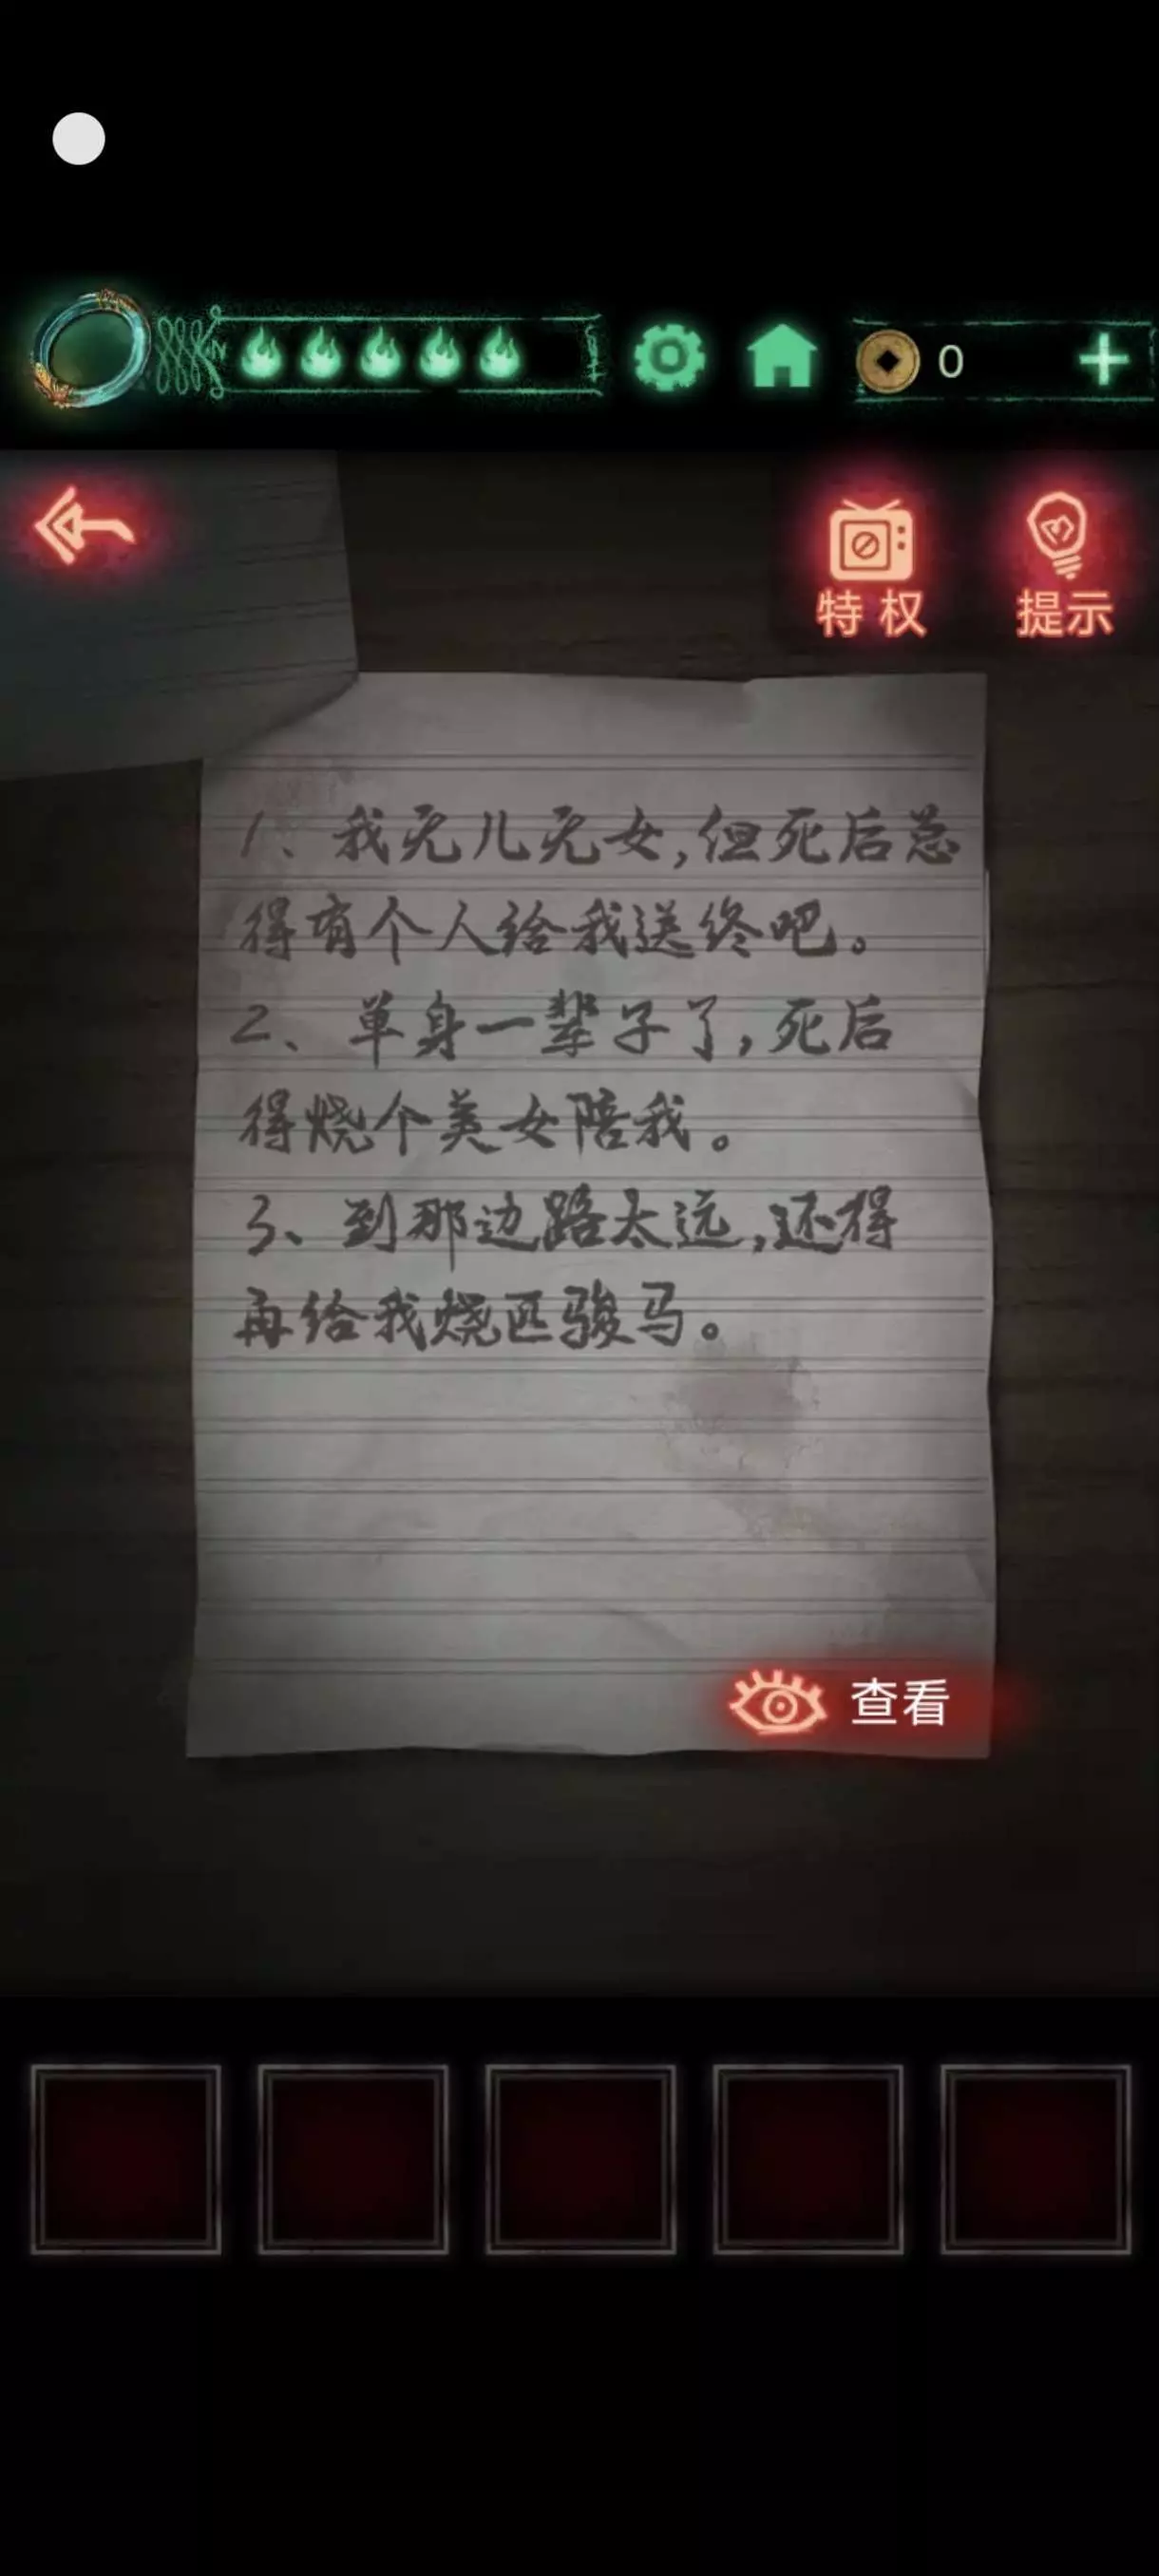 0
特权
提示
1、我无儿无女,但死后总
得有个人给我送终吧。
2、单身一辈子了,死后
得烧个美女陪我。
3、到那边路太远,还得
再给我烧匹骏马。
查看